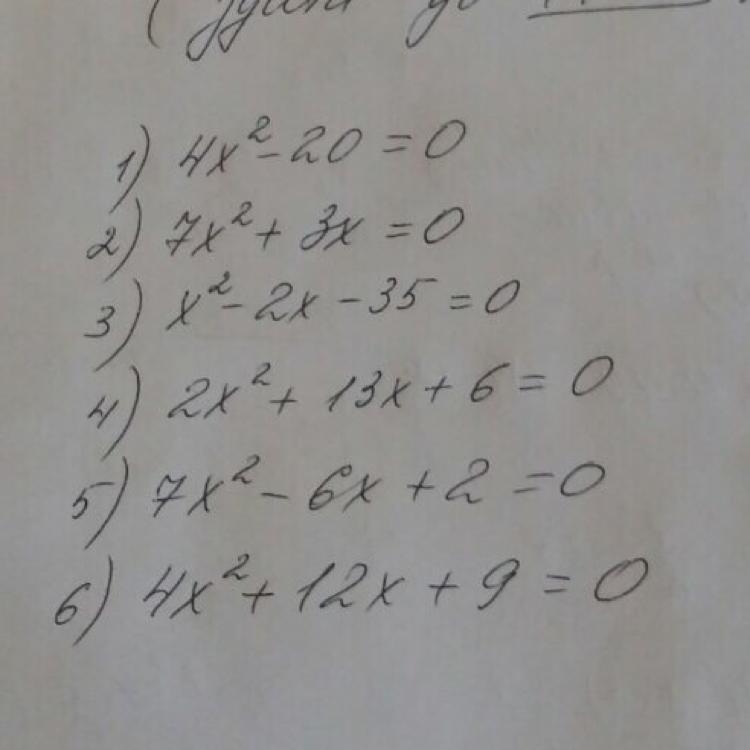 1) 4x² - 20 = 0
2) 7x² + 3x = 0
3) x² - 2x - 35 = 0
4) 2x² + 13x + 6 = 0
5) 7x² - 6x + 2 = 0
6) 4x² + 12x + 9 = 0